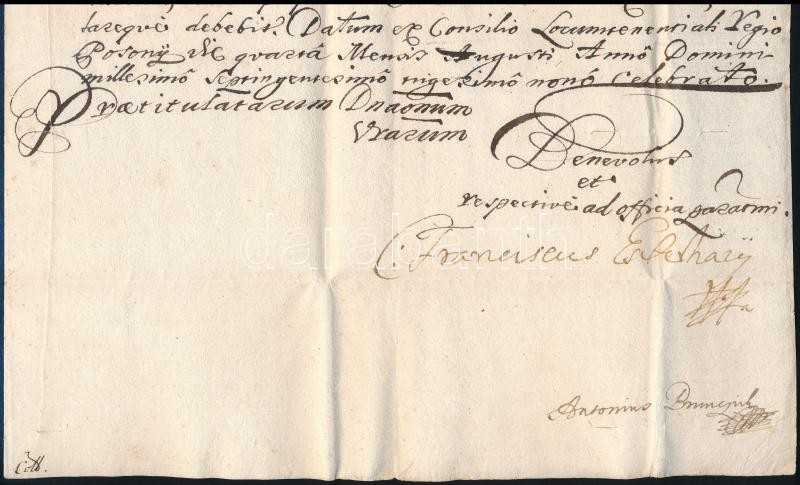 tarequè debebit. Datum ex Consilio Locumtenentiali Regio
Posonÿ die quartâ Mensis Augusti, Annô Domini
millesimô Septingentesimô trigesimô nonô Celebrato.
Praetitulatarum Dnaonum
Vrarum
Benevolus
et
respective ad officia paratmi.
C. Franciscus Esterhazÿ
Antonius
darabanth
Coll.